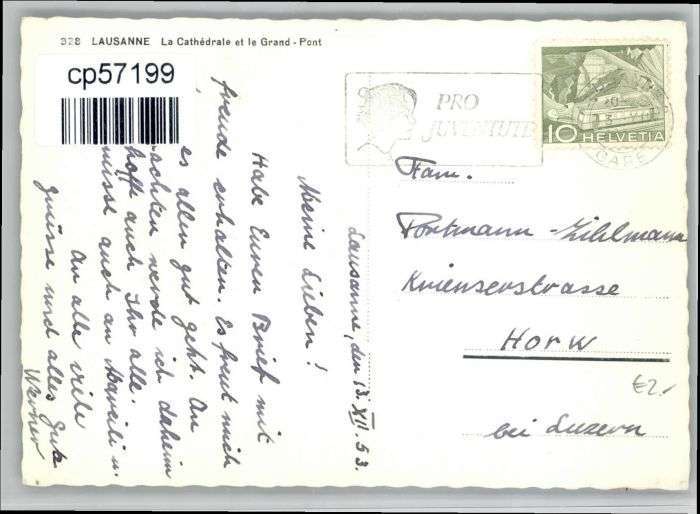 928 LAUSANNE La Cathédrale et le Grand-Pont
cp57199
PRO
JUVENTUTE
10 HELVETIA
GARE
Lausanne, den 13. XII. 53.
Meine Lieben!
Habe Euren Brief mit
freude erhalten. Es freut mich
es allen gut geht. An
achten werde ich daheim
hoffe auch Ihr alle.
müsse auch an u.
An alle viele
Grüsse und alles Gute
Werner
Fam.
Portmann-Zihlmann
Krienserstrasse
Horw
bei Luzern
€2.-